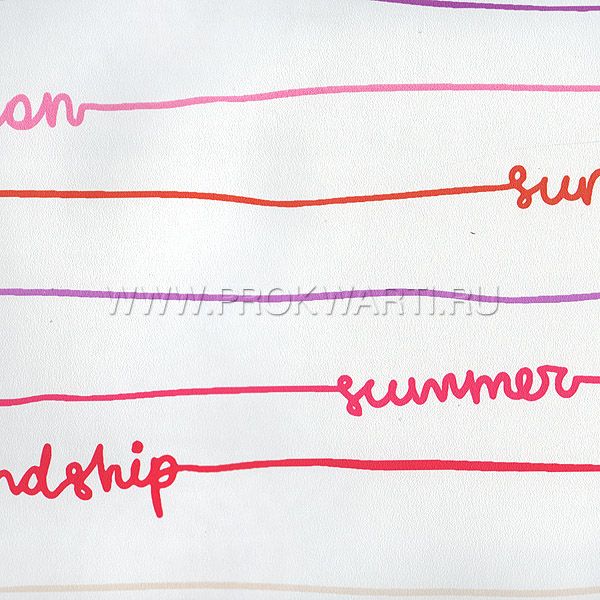 on
sun
WWW.PROKWARTI.RU
summer
ndship